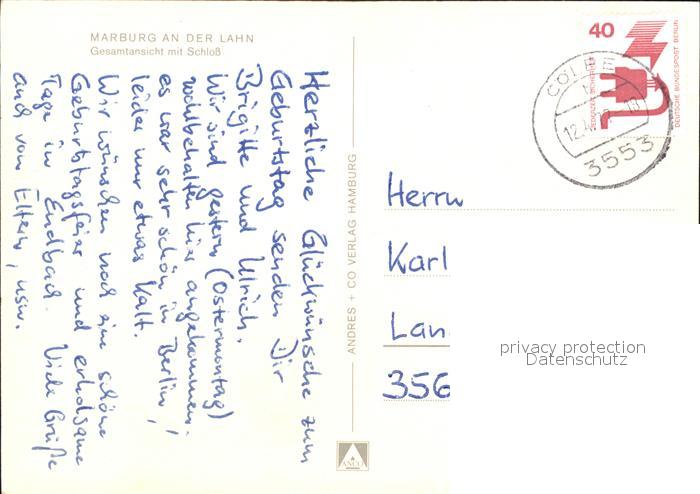 MARBURG AN DER LAHN
Gesamtansicht mit Schloß
Herzliche Glückwünsche zum
Geburtstag senden Dir
Brigitte und Ulrich.
Wir sind gestern (Ostermontag)
wohlbehalten hier angekommen.
es war sehr schön in Berlin,
leider nur etwas kalt.
Wir wünschen noch eine schöne
Geburtstagsfeier und erholsame
Tage in Endbach. Viele Grüße
auch von Eltern, usw.
ANDRES + CO VERLAG HAMBURG
ANCO
40
JEDERZEIT SICHERHEIT
DEUTSCHE BUNDESPOST BERLIN
CÖLBE
12.4.
3553
Herrn
Karl
Lan
356
privacy protection
Datenschutz